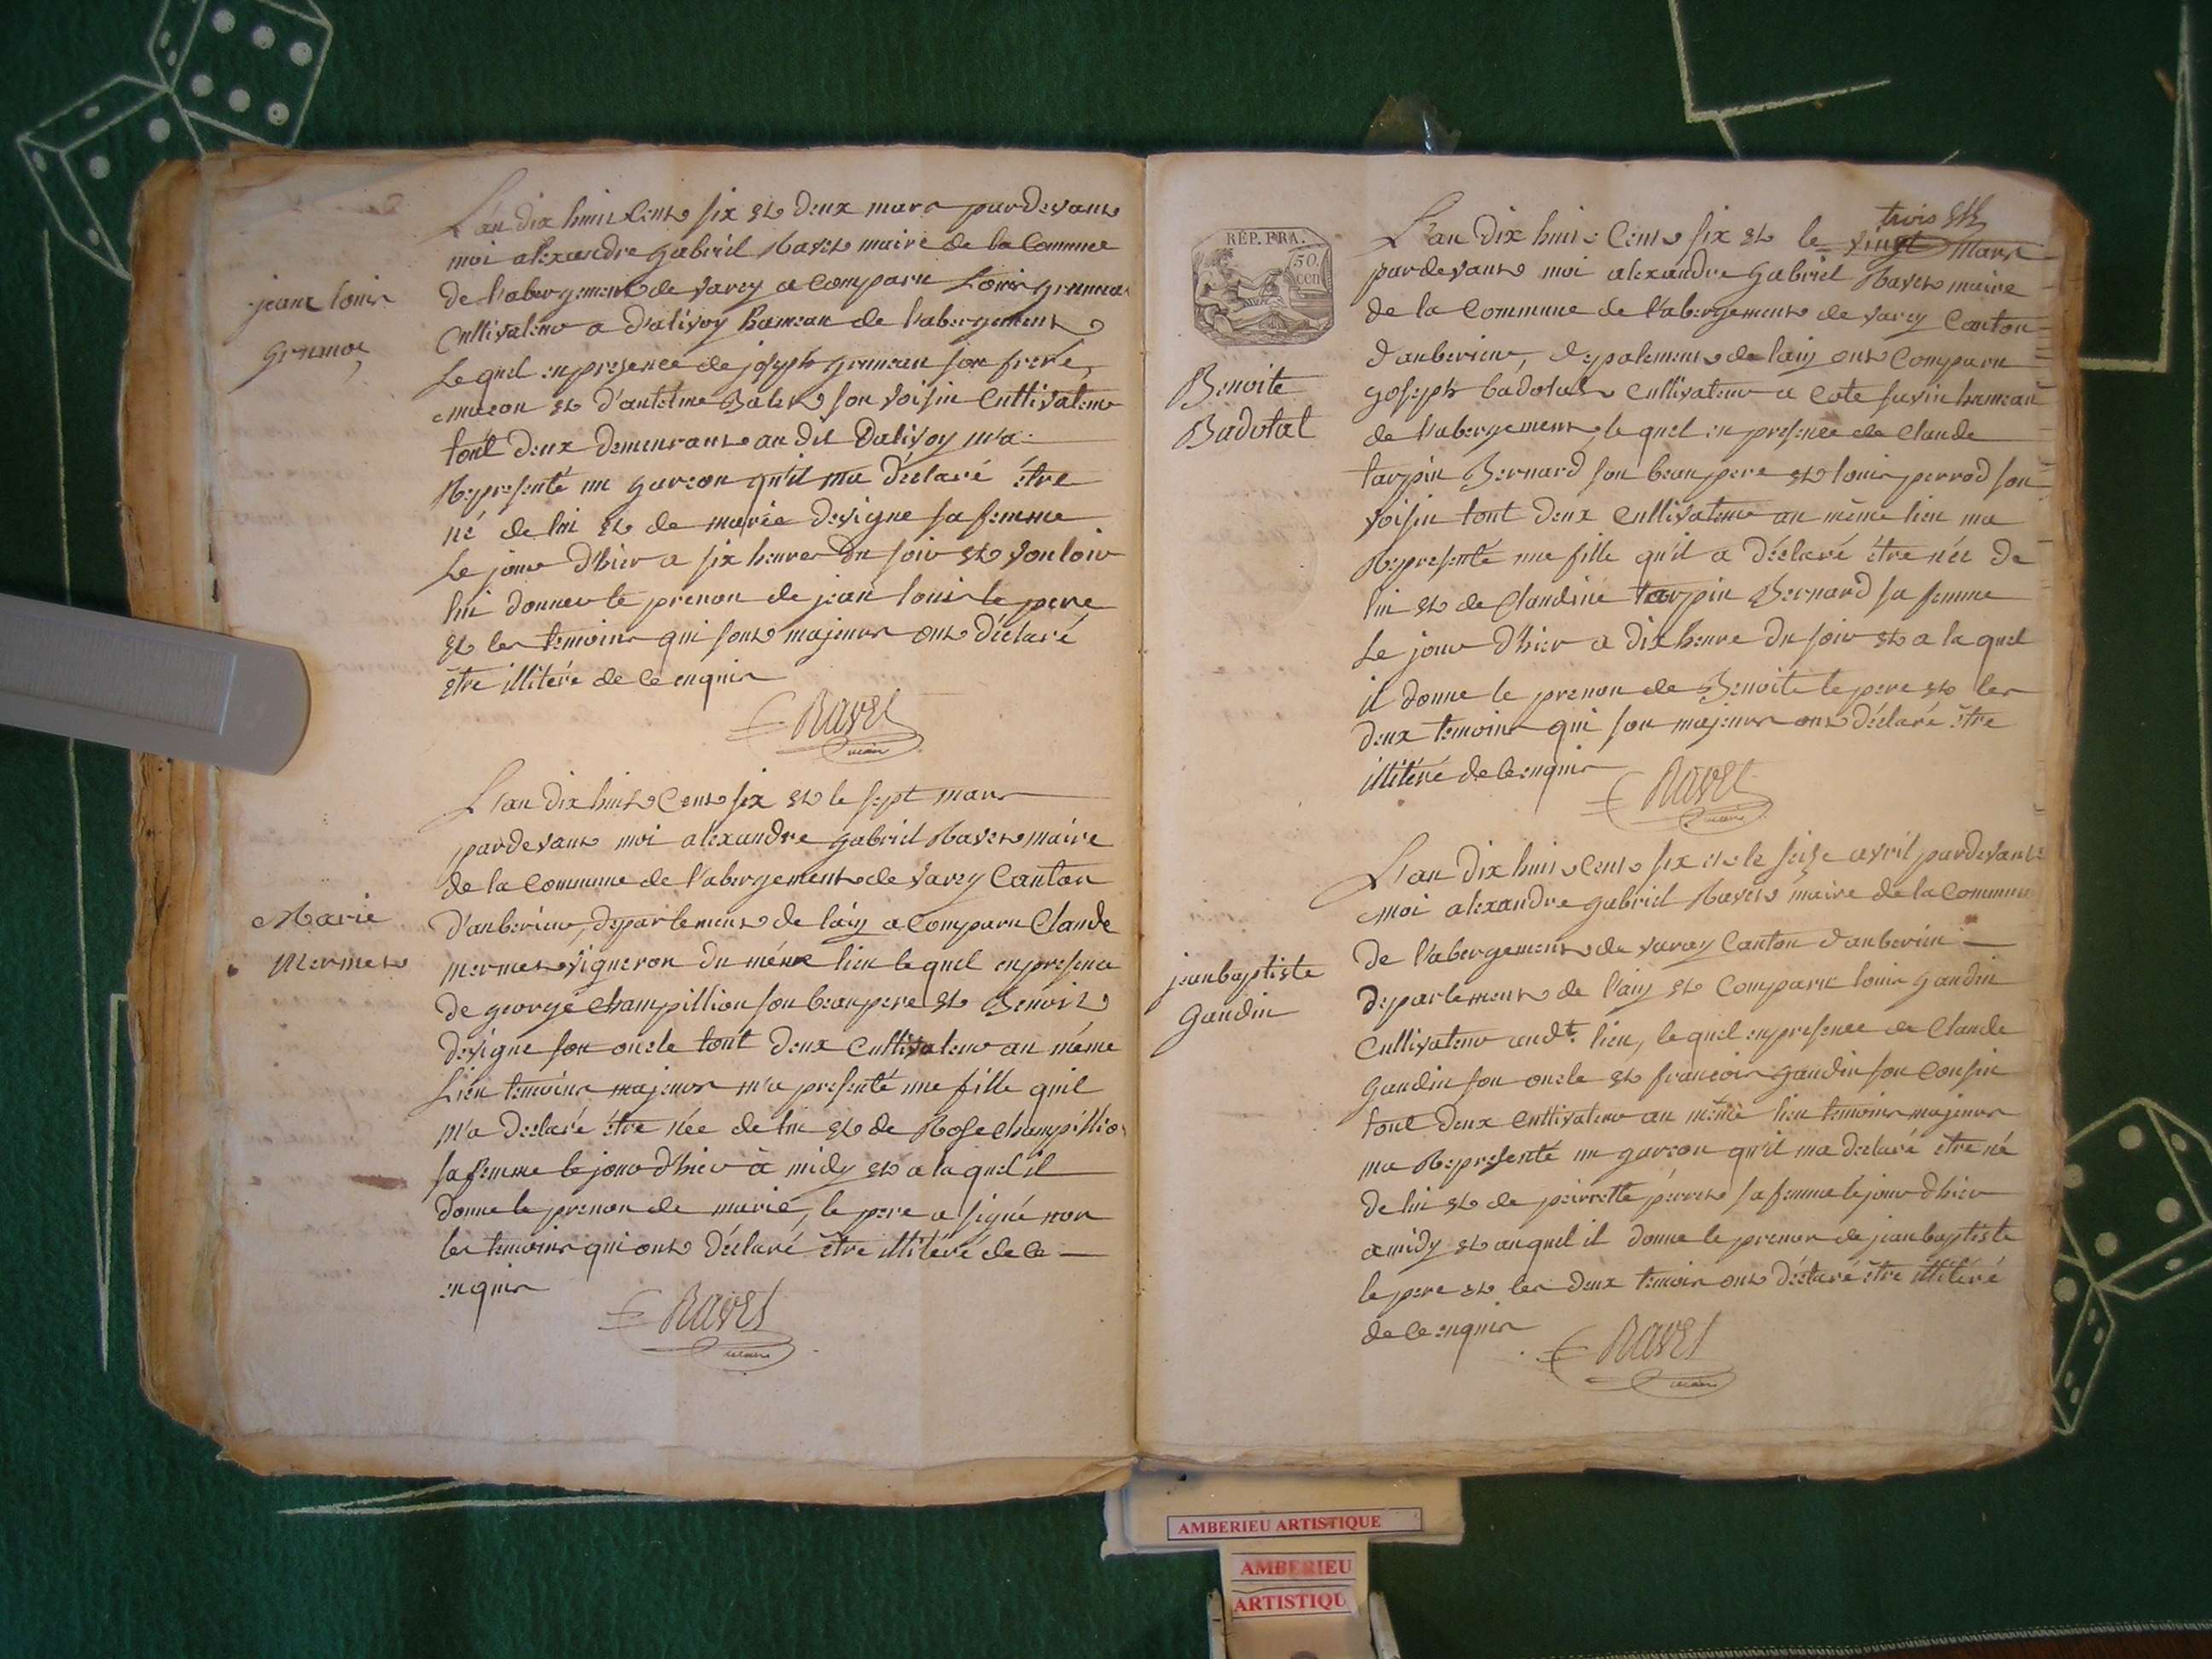 L'an dix huit Cent six et deux mars pardevant
moi alexandre gabriel Ravet maire de la Commune
de l'abergement de varey a comparu Louis
jean louis
Cultivateur a d'alivoy hameau de l'abergement
Le quel en presence de joseph son frere
maçon et d'antelme Balet son voisin Cultivateur
tout deux demeurant au dit Dalivoy m'a
Representé un garcon qu'il ma déclaré être
né de lui et de marie devigne sa femme
Le jour d'hier a six heures du soir et vouloir
lui donner le prenon de jean louis le pere
et les temoins qui sont majeurs ont déclaré
être illiteré de ce enquis
Ravet
maire
L'an dix huit Cent six et le sept mars
pardevant moi alexandre gabriel Ravet maire
de la Commune de l'abergement de varey Canton
Marie
d'auberieu, departement de lain a Comparu Claude
Mermet
mermet vigneron du méme lieu le quel en presence
de george champillion son beau pere et Benoit
devigne son oncle tout deux Cultivateur au méme
Lieu temoins majeurs m'a presenté une fille quil
m'a declaré étre née de lui et de Rose champillio
sa femme le jour d'hier à midy et a la quel il
donne le prenon de marie, le pere a signé non
les temoins qui ont déclaré être illitéré de ce
enquis
Ravet
maire
REP. FRA.
50.
cen
trois
L'an dix huit Cent six et le vingt mars
pardevant moi alexandre gabriel Ravet maire
de la Commune de l'abergement de varey Canton
d'auberieu, depatement de lain ont Comparu
Benoite
goseph badotat Cultivateur a Cote savin hameau
Badotal
de l'abergement, le quel en presence de Claude
tarpin Bernard son beau pere et louis perrod son
voisin tout deux Cultivateur au même lieu ma
Representé une fille qu'il a déclaré être née de
lui et de Claudine tarpin Bernard sa femme
Le jour d'hier a dix heure du soir et a la quel
il donne le prenon de Benoite le pere et les
deux temoins qui son majeurs ont déclaré être
illitéré de ce enquis
Ravet
maire
L'an dix huit Cent six et le seize avril pardevant
moi alexandre gabriel Ravet maire de la Commune
de l'abergement de varey Canton d'auberieu
jean baptiste
departement de l'ain et Comparu louis gaudin
Gaudin
Cultivateur audt. lieu, le quel en presence de Claude
gaudin son oncle et francois gaudin son Cousin
tout deux Cultivateur au même lieu temoins majeurs
ma Representé un garcon qu'il ma declaré etre né
de lui et de peirrette perret sa femme le jour d'hier
a midy et au quel il donne le prenon de jean baptiste
le pere et les deux temoin ont déclaré être illitéré
de ce enquis
Ravet
maire
AMBERIEU ARTISTIQUE
AMBERIEU
ARTISTIQU